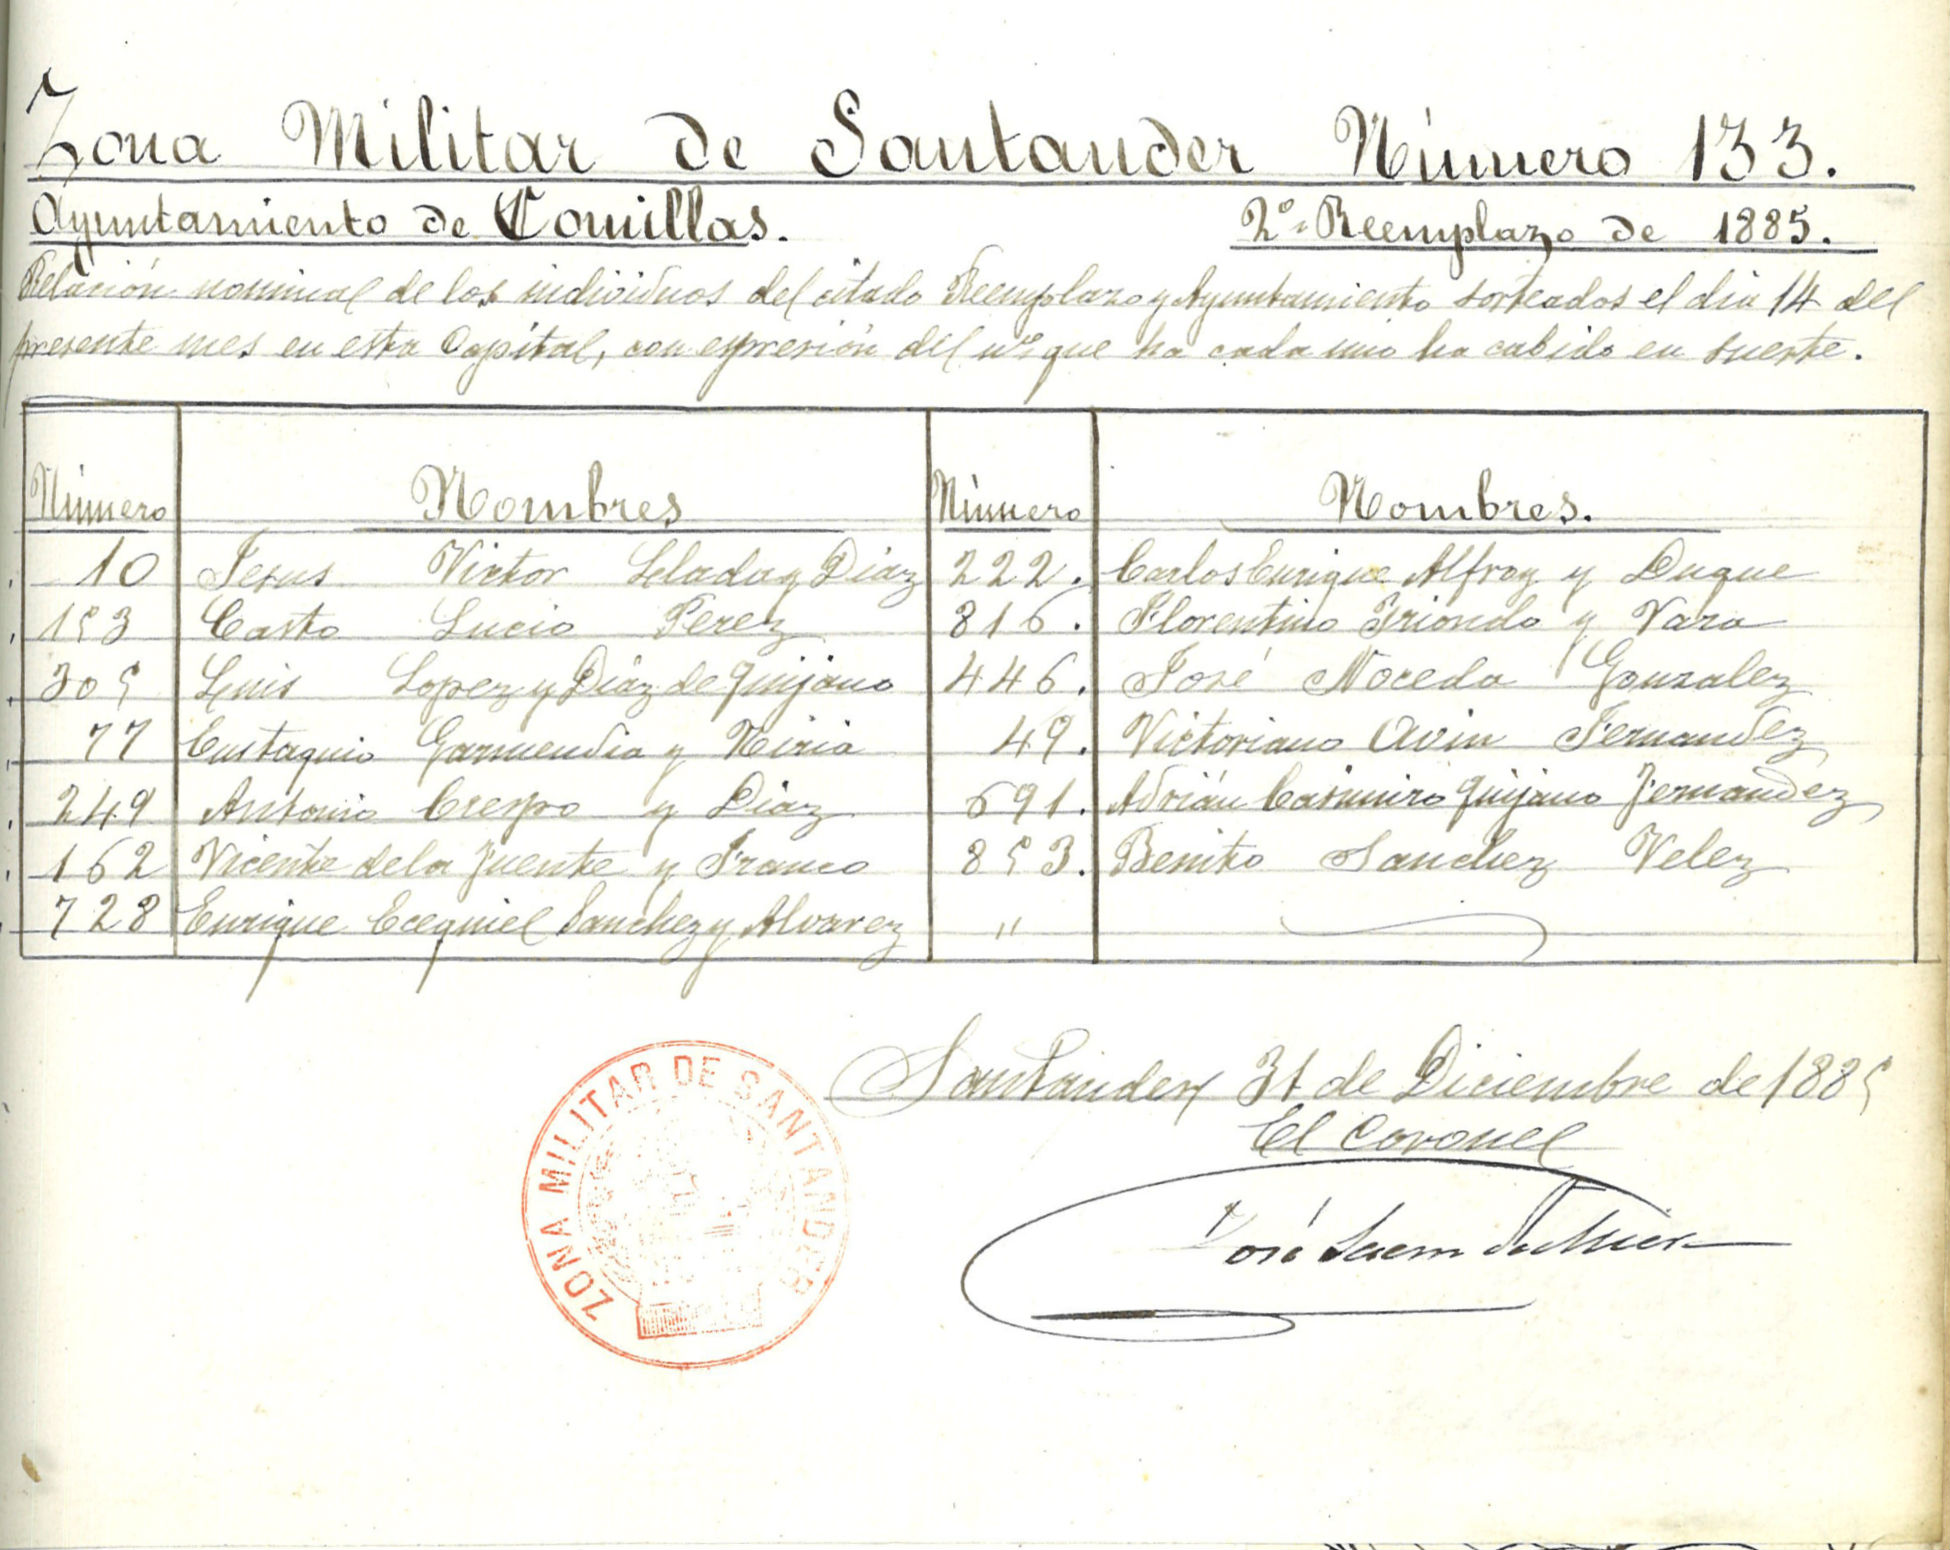 Zona Militar de Santander Número 133.
Ayuntamiento de Comillas. 2º Reemplazo de 1885.
Relación nominal de los individuos del citado Reemplazo y Ayuntamiento sorteados el dia 14 del
presente mes en esta Capital, con expresión del nº que ha cada uno ha cabido en suerte.
Número Nombres Número Nombres.
10 Jesus Victor Llada y Diaz 222. Carlos Enrique Alfroy y Duque
153 Casto Lucio Perez 816. Florentino Iriondo y Vara
305 Luis Lopez y Diaz de Quijano 446. José Noceda Gonzalez
77 Eustaquio Garmendia y 49. Victoriano Avin Fernandez
249 Antonio Crespo y Diaz 691. Adrián Casimiro Quijano Fernandez
162 Vicente de la Fuente y Franco 853. Benito Sanchez Velez
728 Enrique Ecequiel Sanchez y Alvarez "
Santander 31 de Diciembre de 1885
El Coronel
José
ZONA MILITAR DE SANTANDER